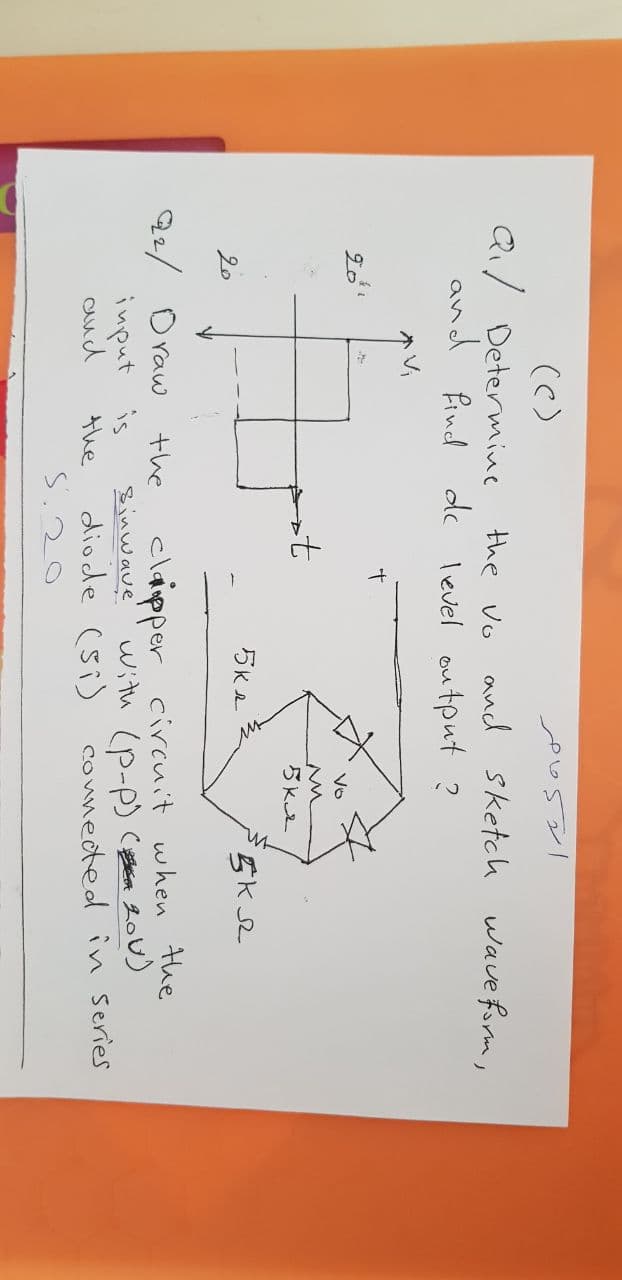 (C)
Q1/ Determine the Vo and sketch waveform,
and find dc level output ?
Vi
20
t
20
+
-
Vo
5kΩ
5kΩ
5kΩ
Q2/ Draw the clipper circuit when the
input is sinwave with (p-p) (20V)
and the diode (Si) connected in series